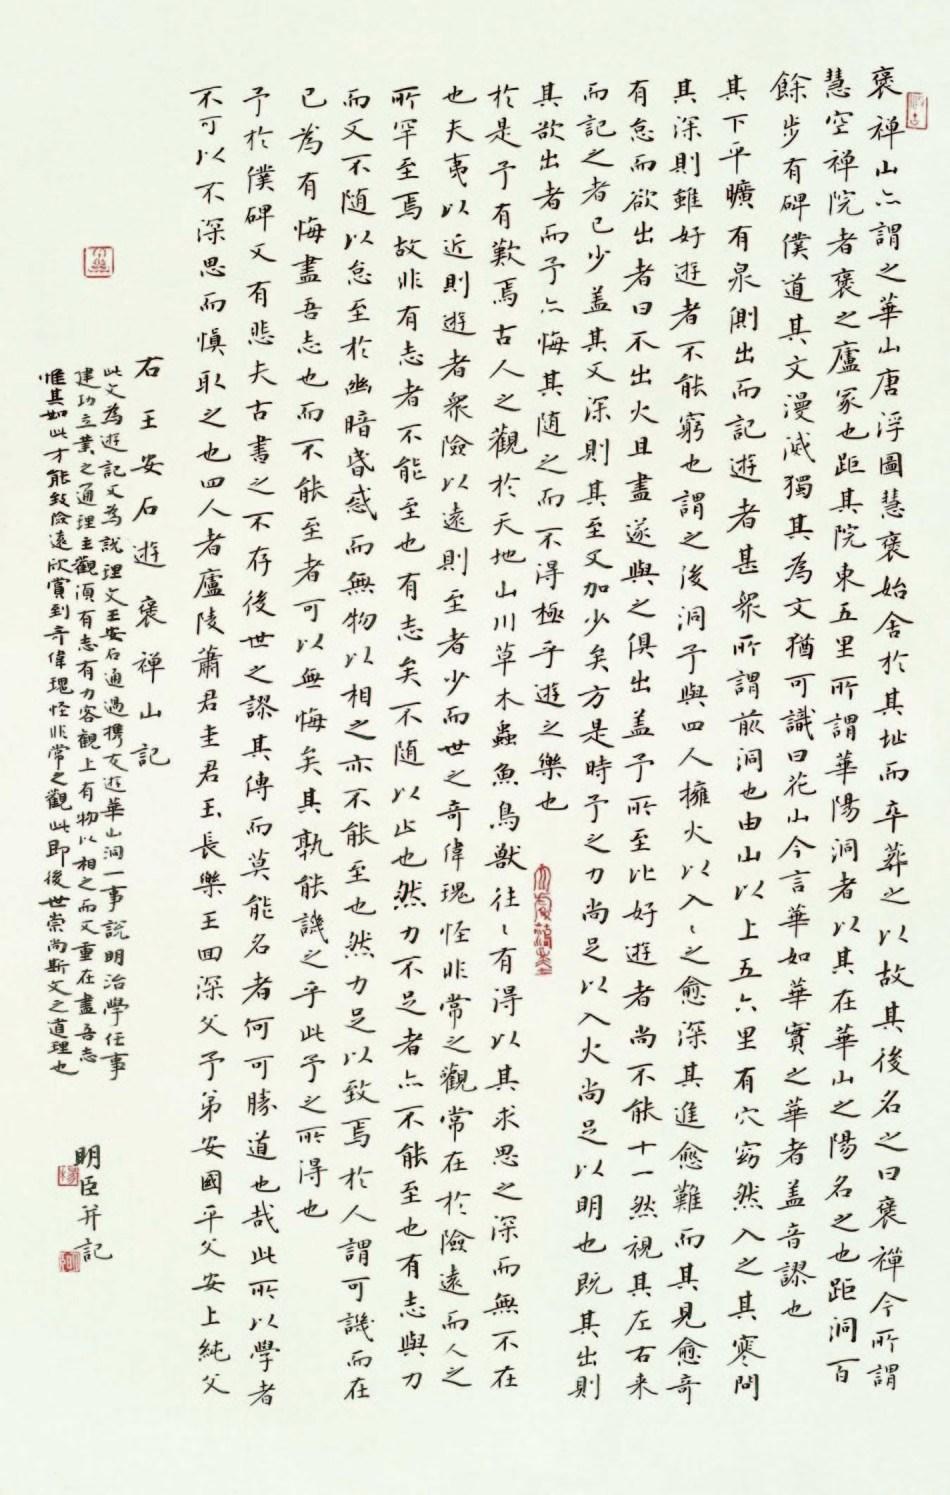 褒禪山亦謂之華山唐浮圖慧褒始舍於其址而卒葬之以故其後名之曰褒禪今所謂
慧空禪院者褒之廬冢也距其院東五里所謂華陽洞者以其在華山之陽名之也距洞百
餘步有碑僕道其文漫滅獨其為文猶可識曰花山今言華如華實之華者蓋音謬也
其下平曠有泉側出而記遊者甚衆所謂前洞也由山以上五六里有穴窈然入之其寒問
其深則雖好遊者不能窮也謂之後洞予與四人擁火以入〻之愈深其進愈難而其見愈奇
有怠而欲出者曰不出火且盡遂與之俱出蓋予所至比好遊者尚不能十一然視其左右来
而記之者已少蓋其又深則其至又加少矣方是時予之力尚足以入火尚足以明也既其出則
其欲出者而予亦悔其随之而不得極乎遊之樂也
於是予有歎焉古人之觀於天地山川草木蟲魚鳥獸往〻有得以其求思之深而無不在
也夫夷以近則遊者衆險以遠則至者少而世之奇偉瑰怪非常之觀常在於險遠而人之
所罕至焉故非有志者不能至也有志矣不随以止也然力不足者亦不能至也有志與力
而又不随以怠至於幽暗昏惑而無物以相之亦不能至也然力足以致焉於人謂可譏而在
已為有悔盡吾志也而不能至者可以無悔矣其孰能譏之乎此予之所得也
予於僕碑又有悲夫古書之不存後世之謬其傳而莫能名者何可勝道也哉此所以學者
不可以不深思而慎取之也四人者廬陵蕭君圭君玉長樂王回深父予弟安國平父安上純父
右王安石遊褒禪山記
此文為遊記又為説理文王安石通過攜友遊華山洞一事説明治學任事
建功立業之通理主觀須有志有力客觀上有物以相之而又重在盡吾志
惟其如此才能致險遠欣賞到奇偉瑰怪非常之觀此即後世崇尚斯文之道理也
明臣并記